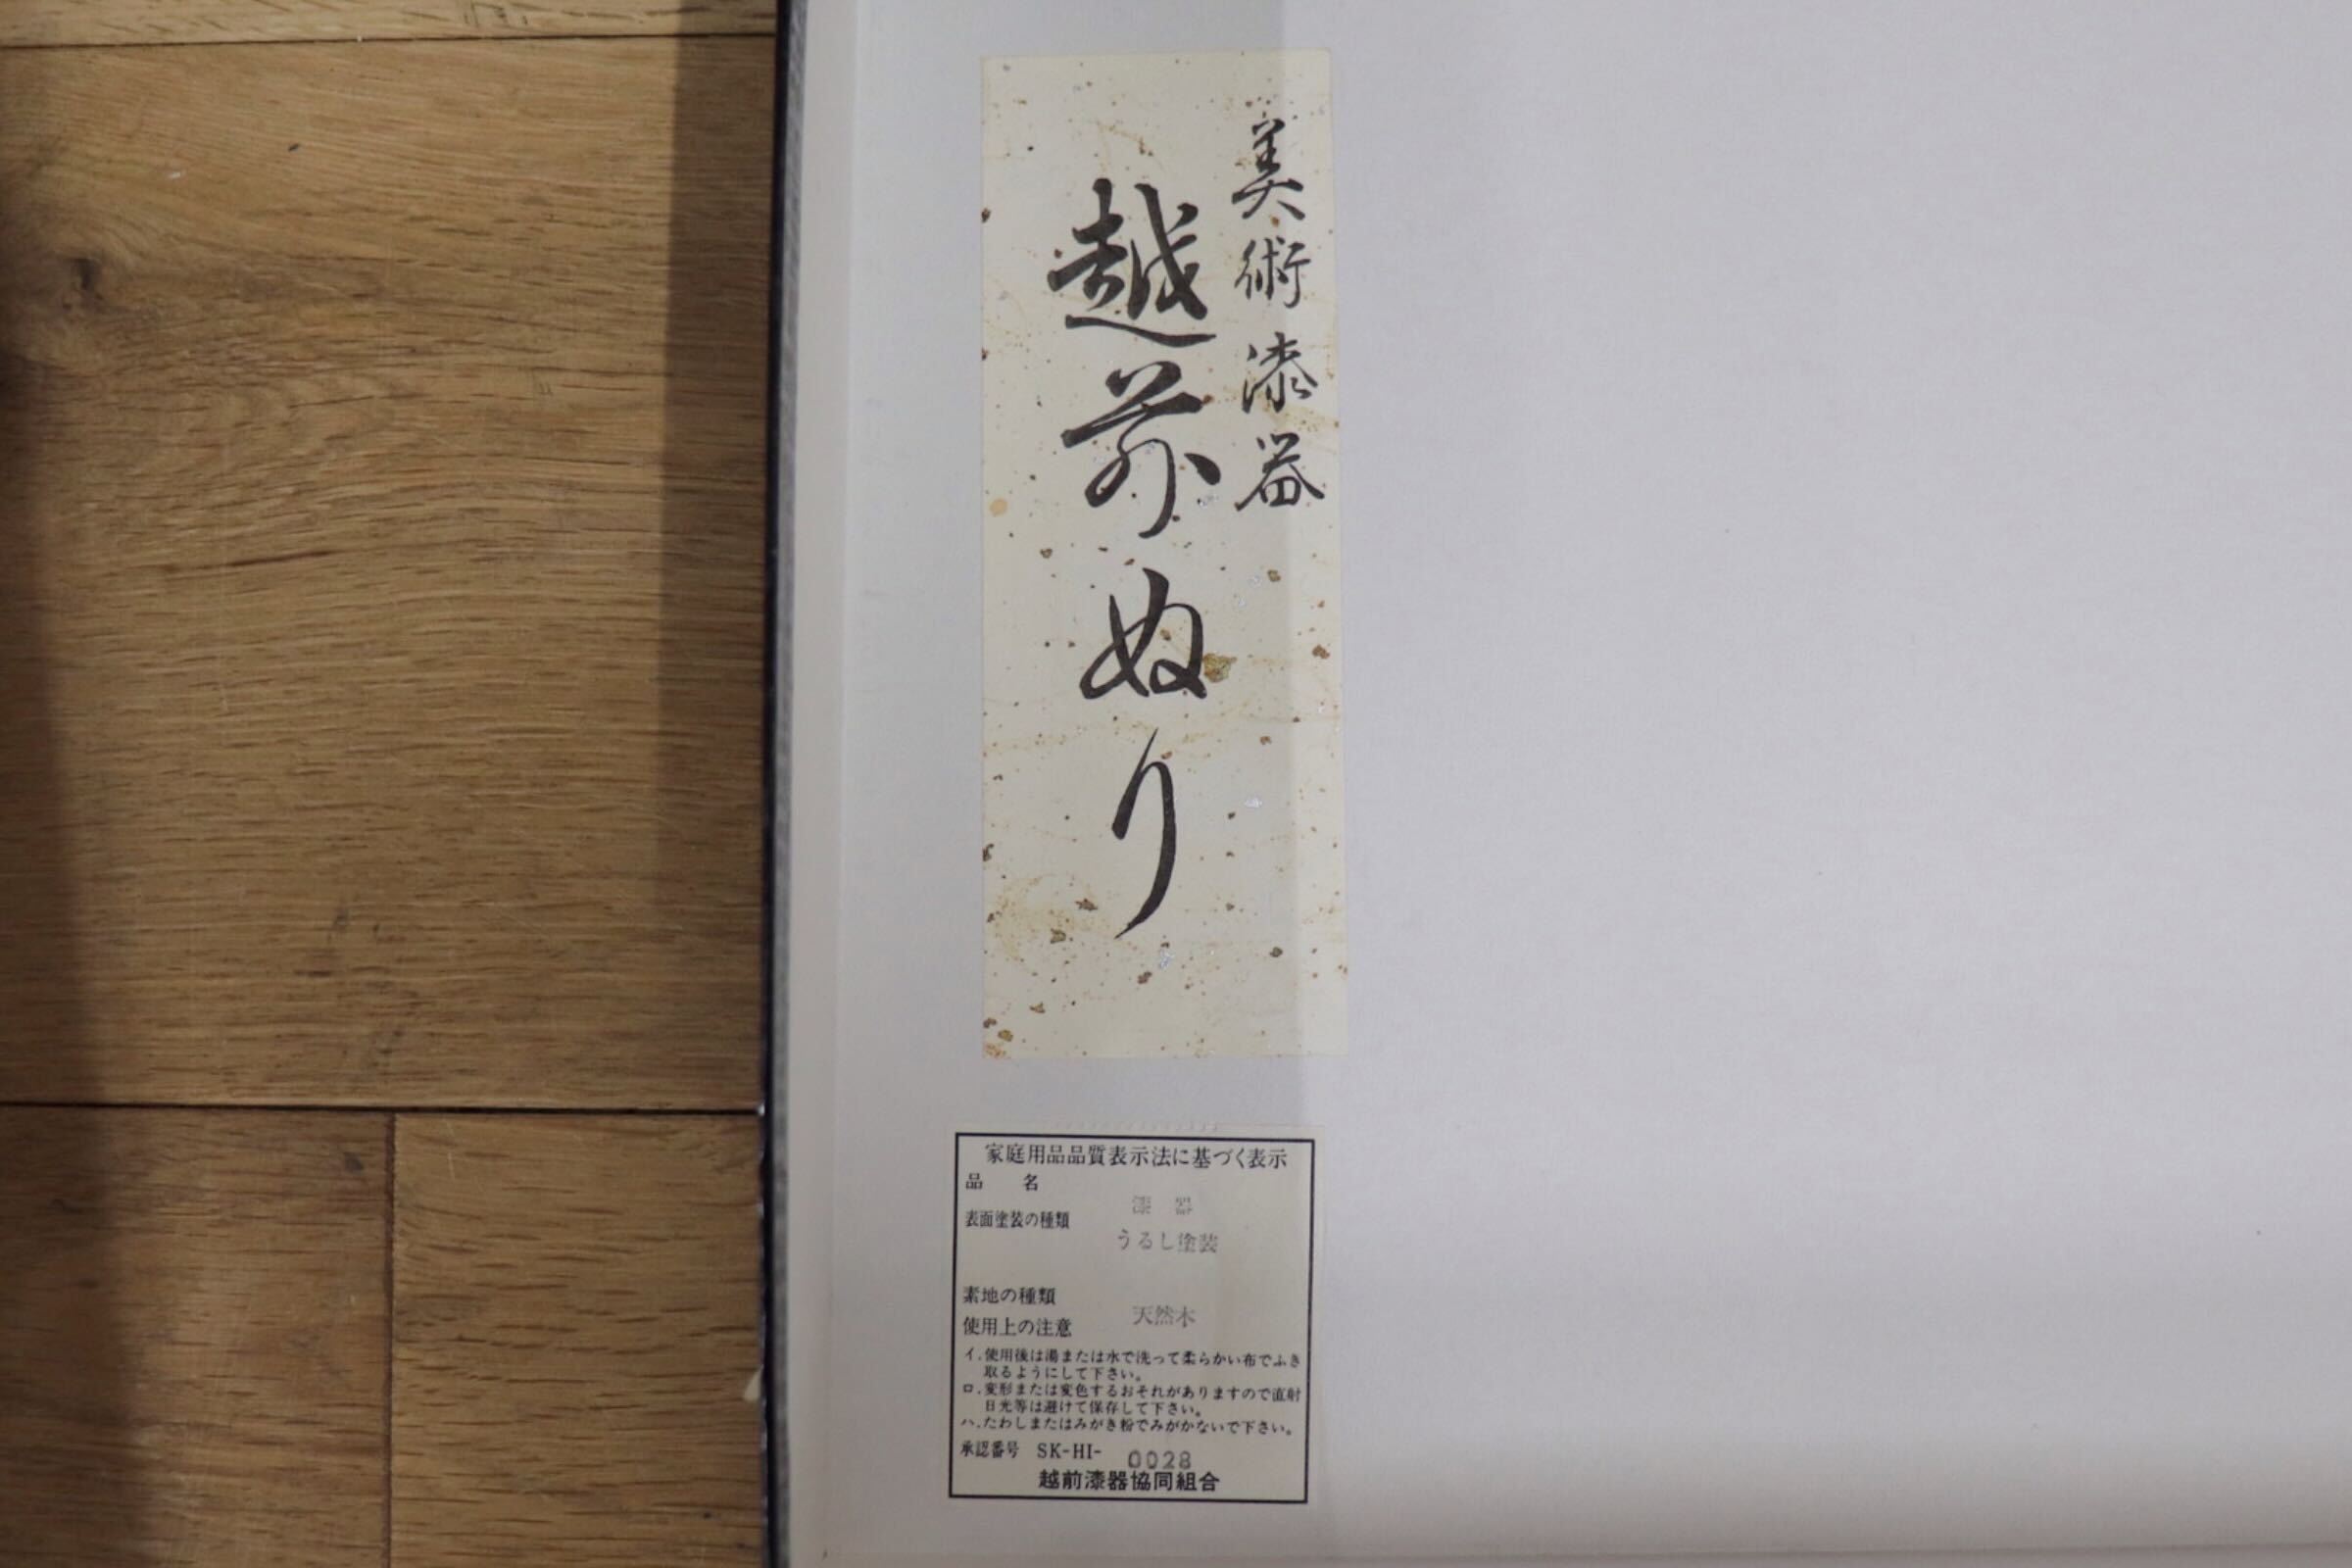 美術漆器
越前ぬり
家庭用品品質表示法に基づく表示
品名
漆器
表面塗装の種類
うるし塗装
素地の種類
天然木
使用上の注意
イ.使用後は湯または水で洗って柔らかい布でふき
取るようにして下さい。
ロ.変形または変色するおそれがありますので直射
日光等は避けて保存して下さい。
ハ.たわしまたはみがき粉でみがかないで下さい。
承認番号 SK-HI-0028
越前漆器協同組合